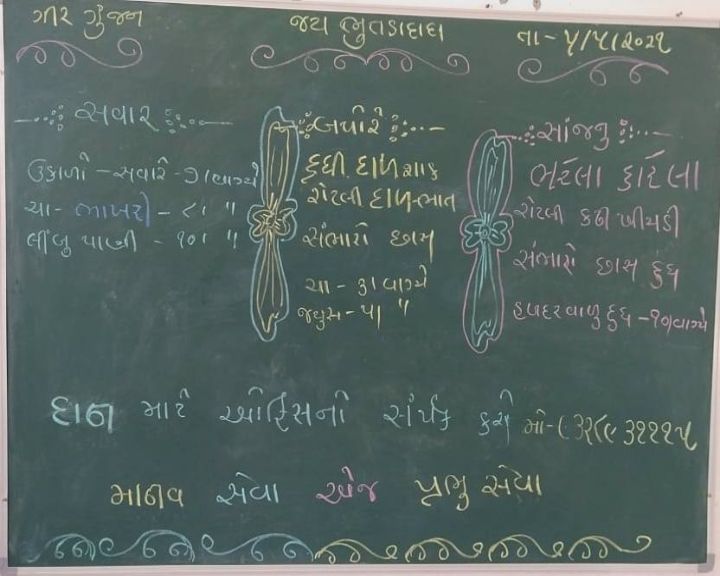 ગીર ગુંજન
જય ભુતડાદાદા
તા-૫/૫/૨૦૨૧
સવાર
ઉકાળો - સવારે - ૭ા વાગ્યે
ચા - ભાખરી - ૮ા "
લીંબુ પાણી - ૧૦ા "
બપોરે
દુધી દાળ શાક
રોટલી દાળ-ભાત
સંભારો છાસ
ચા - ૩ા વાગ્યે
જ્યુસ - ૫ા "
સાંજનુ
ભરેલા કારેલા
રોટલી કઢી ખીચડી
સંભારો છાસ દુધ
હળદરવાળુ દુધ - ૧૦ વાગ્યે
દાન માટે ઓફિસનો સંપર્ક કરો મો-
માનવ સેવા એજ પ્રભુ સેવા